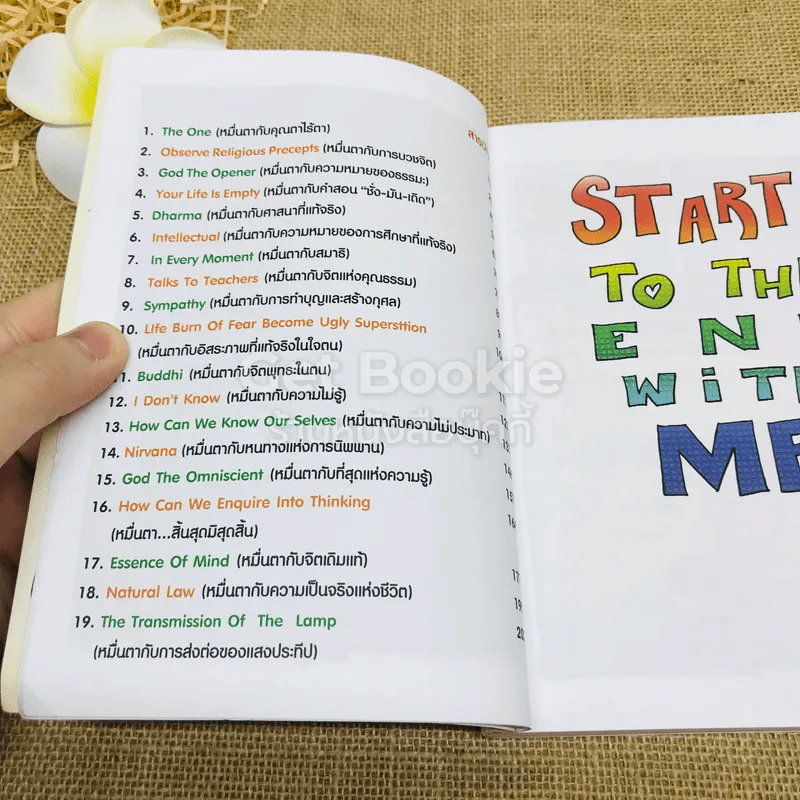 1. The One (หมื่นตากับคุณตาไร้ตา)
2. Observe Religious Precepts (หมื่นตากับการบวชจิต)
3. God The Opener (หมื่นตากับความหมายของธรรมะ)
4. Your Life Is Empty (หมื่นตากับคำสอน “ชั่ง-มัน-เถิด”)
5. Dharma (หมื่นตากับศาสนาที่แท้จริง)
6. Intellectual (หมื่นตากับความหมายของการศึกษาที่แท้จริง)
7. In Every Moment (หมื่นตากับสมาธิ)
8. Talks To Teachers (หมื่นตากับจิตแห่งคุณธรรม)
9. Sympathy (หมื่นตากับการทำบุญและสร้างกุศล)
10. Life Burn Of Fear Become Ugly Supersttion
(หมื่นตากับอิสระภาพที่แท้จริงในใจตน)
11. Buddhi (หมื่นตากับจิตพุทธะในตน)
12. I Don't Know (หมื่นตากับความไม่รู้)
13. How Can We Know Our Selves (หมื่นตากับความไม่ประมาท)
14. Nirvana (หมื่นตากับหนทางแห่งการนิพพาน)
15. God The Omniscient (หมื่นตากับที่สุดแห่งความรู้)
16. How Can We Enquire Into Thinking
(หมื่นตา...สิ้นสุดมิสุดสิ้น)
17. Essence Of Mind (หมื่นตากับจิตเดิมแท้)
18. Natural Law (หมื่นตากับความเป็นจริงแห่งชีวิต)
19. The Transmission Of The Lamp
(หมื่นตากับการส่งต่อของแสงประทีป)
START
TO TH
EN
WiT
ME
Get Bookie
ร้านหนังสือบุ๊คกี้